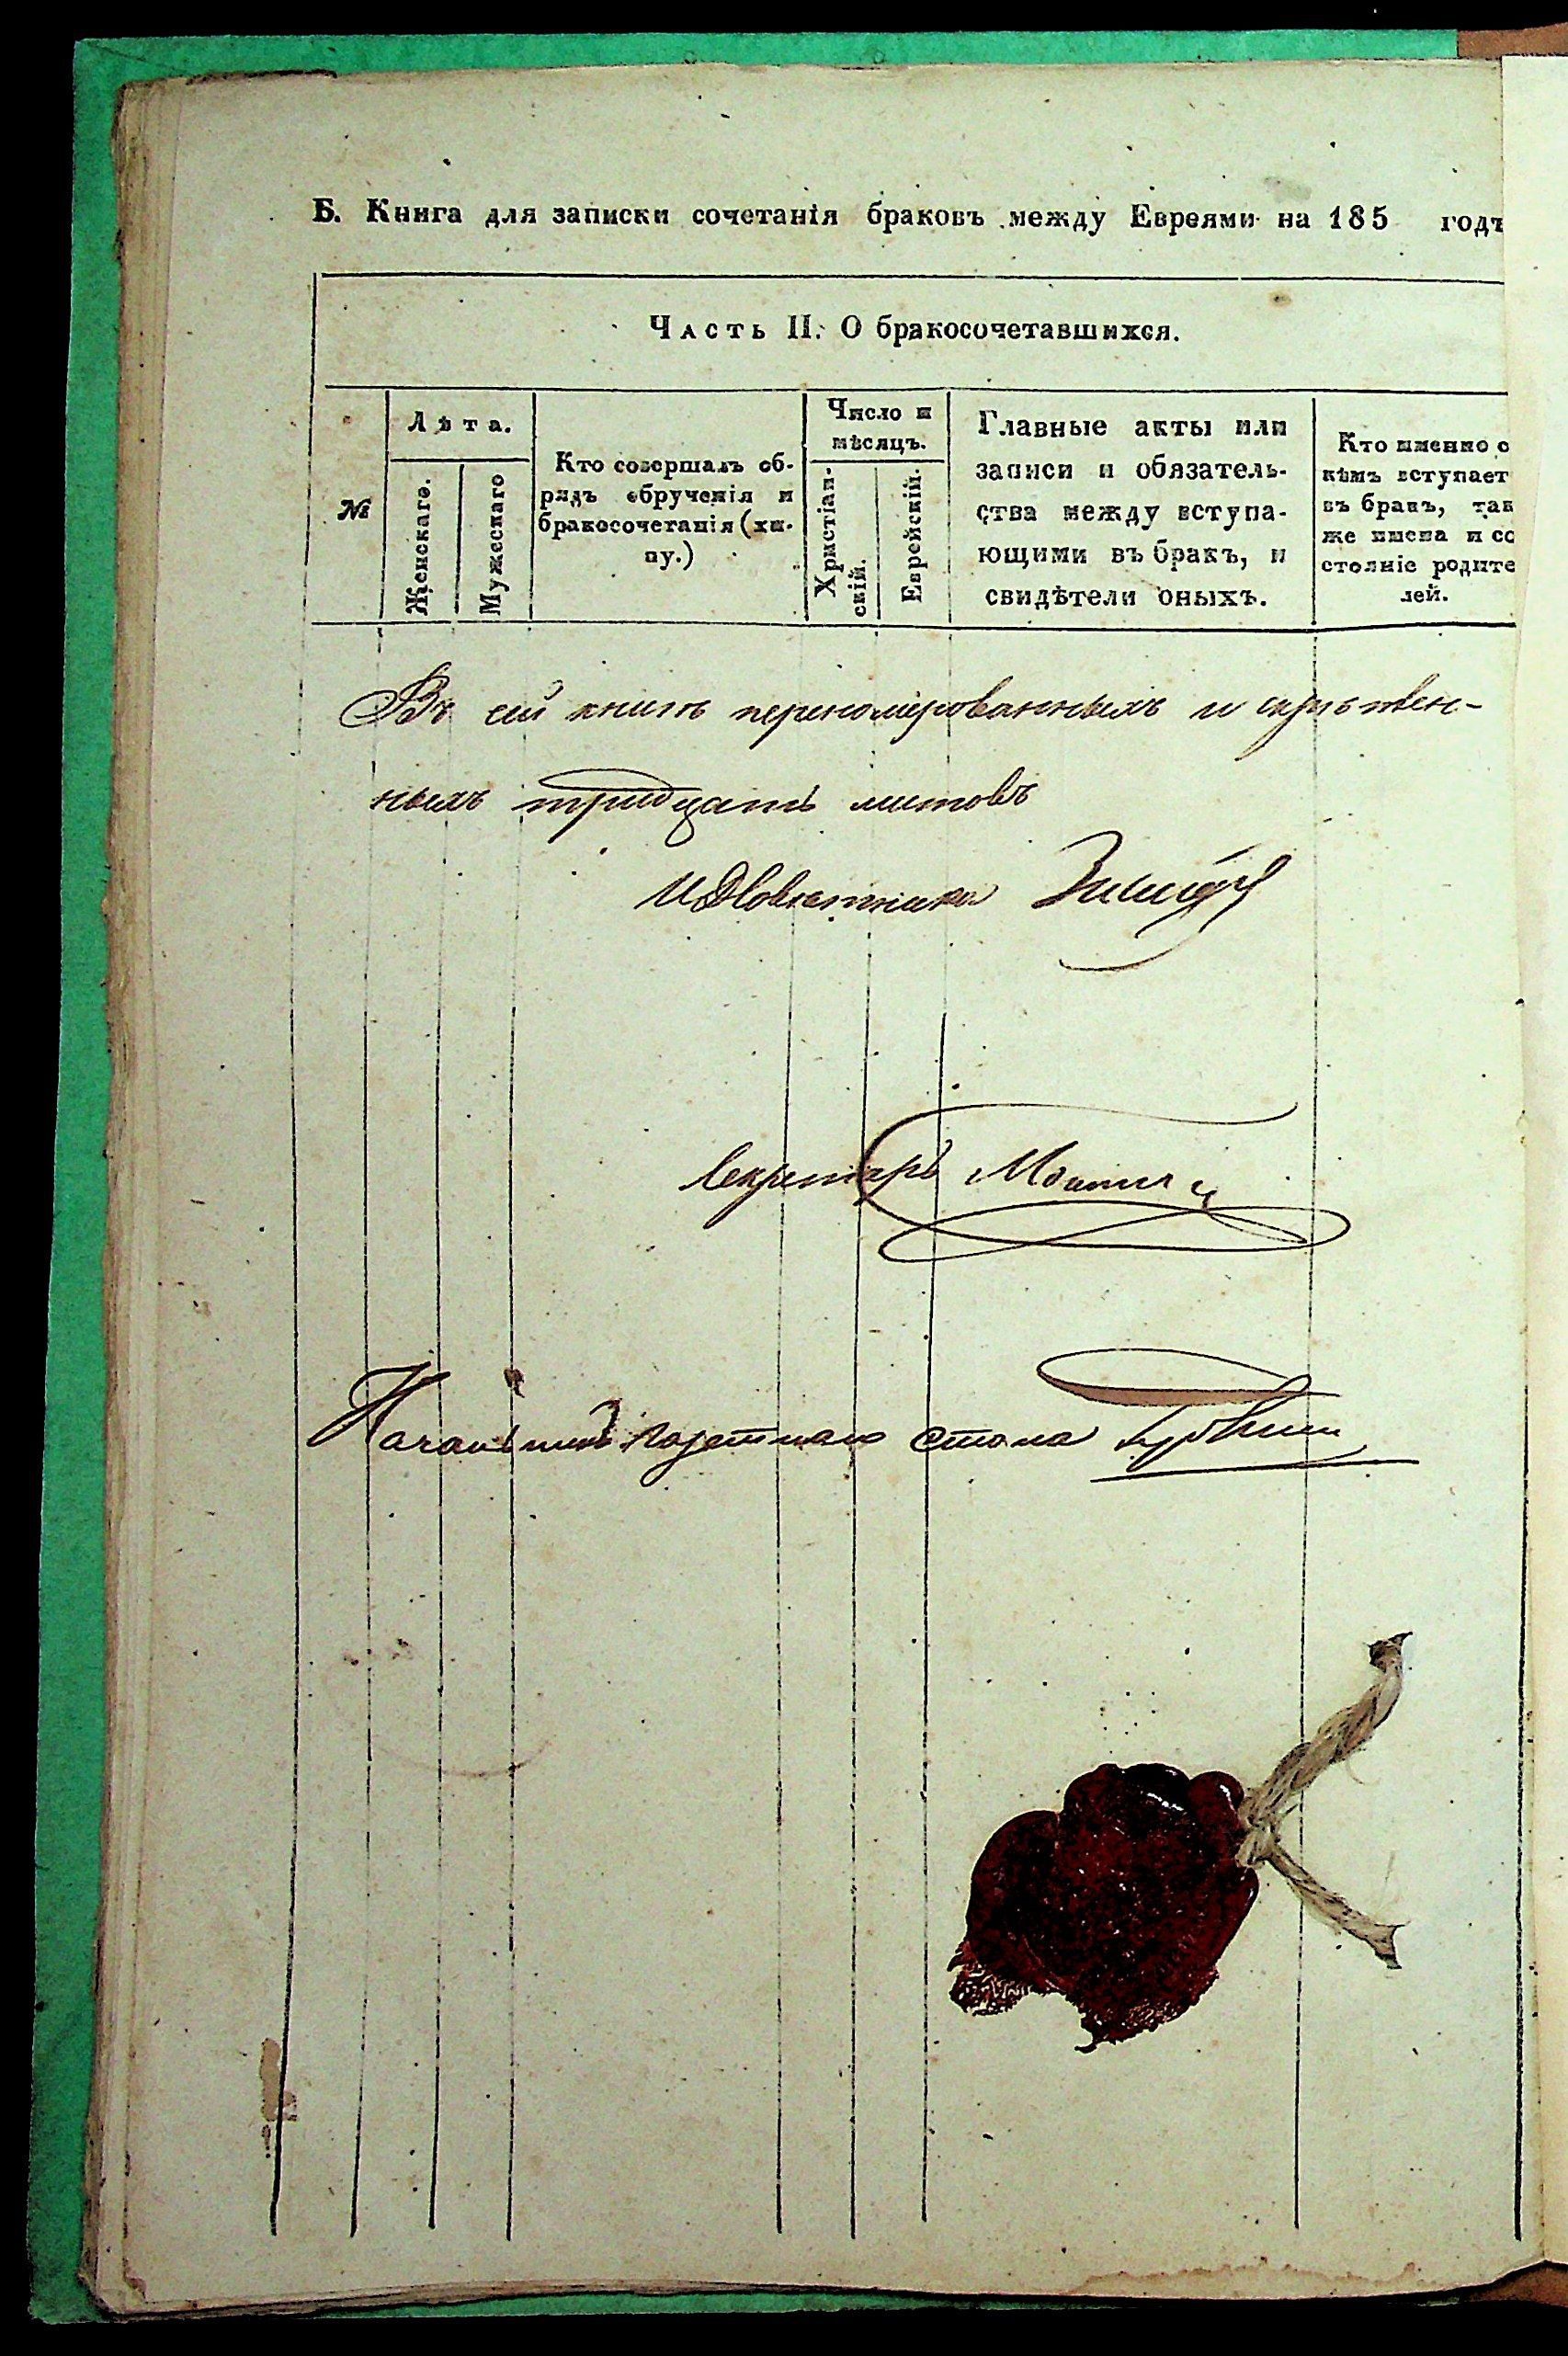 Б. Книга для записки сочетанія браковъ между Евреями на 185 годъ
Часть II. О бракосочетавшихся.
№
Лѣта.
Женскаго.
Мужескаго
Кто совершалъ об-
рядъ обрученія и
бракосочетанія (хи-
пу.)
Число и
мѣсяцъ.
Христіан-
скій.
Еврейскій.
Главные акты или
записи и обязатель-
ства между вступа-
ющими въ бракъ, и
свидѣтели оныхъ.
Кто именно с
кѣмъ вступает
въ бракъ, так
же имена и со
стояніе родите
лей.
Въ сей книгѣ перенумерованныхъ и скрѣплен-
ныхъ тридцать листовъ
Секретарь
Начальникъ Газетнаго Стола